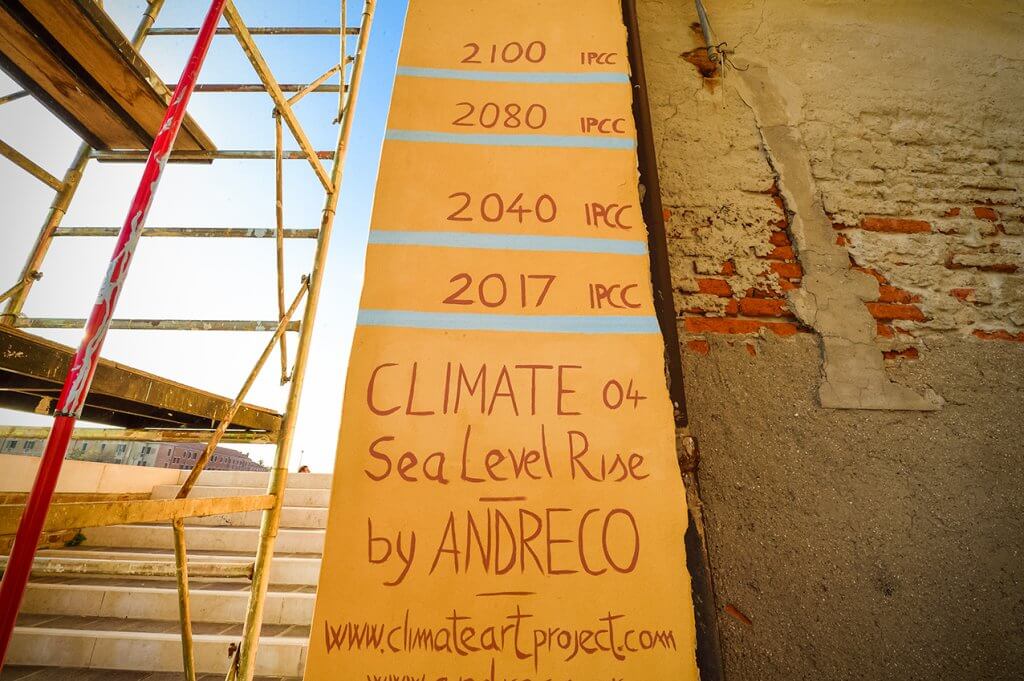 2100 IPCC
2080 IPCC
2040 IPCC
2017 IPCC
CLIMATE 04
Sea Level Rise
by ANDRECO
www.climateartproject.com